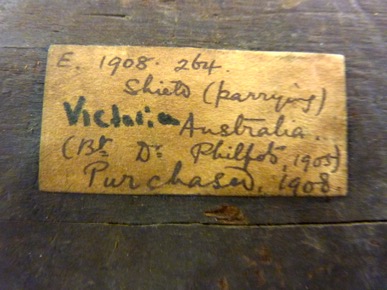 E. 1908. 264.
Shield (parrying)
Victoria Australia.
(Bt. Dr. Philpots, 1905)
Purchased, 1908.